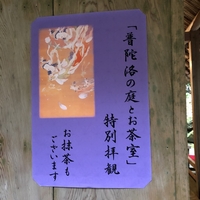 「普陀洛の庭とお茶室」
特別拝観
お抹茶も
ございます